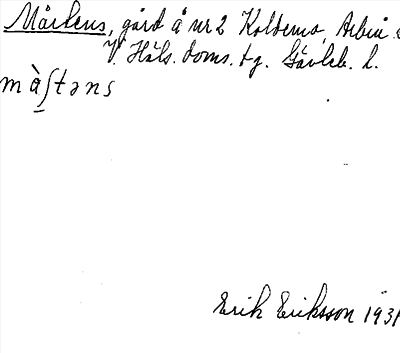 Mårtens, gård å nr 2 Koldemo, Arbrå s
V. Häls. doms. tg. Gävleb. l.
màʃtəns
Erik Eriksson 1931